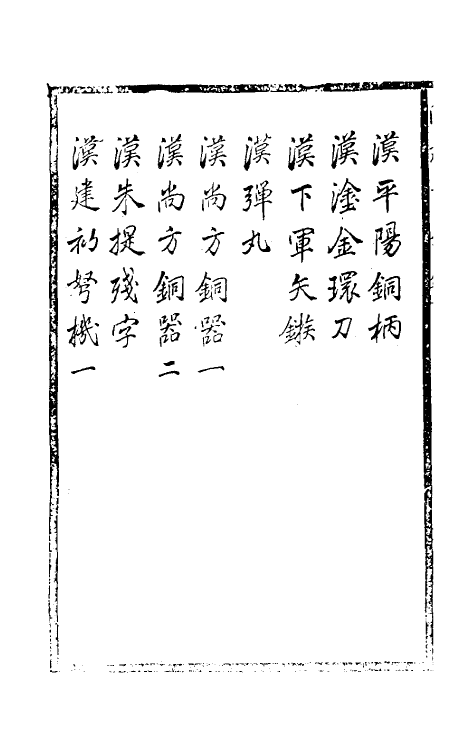 漢平陽銅柄
漢塗金環刀
漢下軍矢鏃
漢彈丸
漢尚方銅器一
漢尚方銅器二
漢朱提殘字
漢建初弩機一